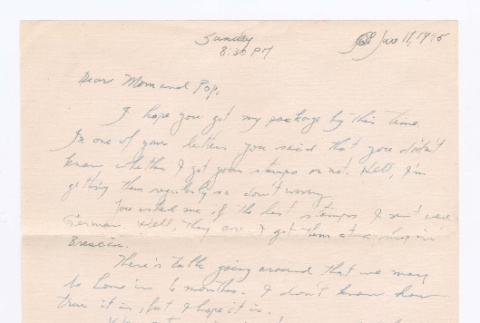 Sunday
8:30 PM
11, 1945
Dear Mom and Pop,
I hope you got my package by this time.
In one of your letters you said that you didn't
know whether I got your stamps or not. Well, I'm
getting them regularly so don't worry.
You asked me if the last stamps I sent were
German. Well, they are. I got them at a shop in
Brescia.
There's talk going around that we may
go home in 6 months. I don't know how
true it is, but I hope it is.